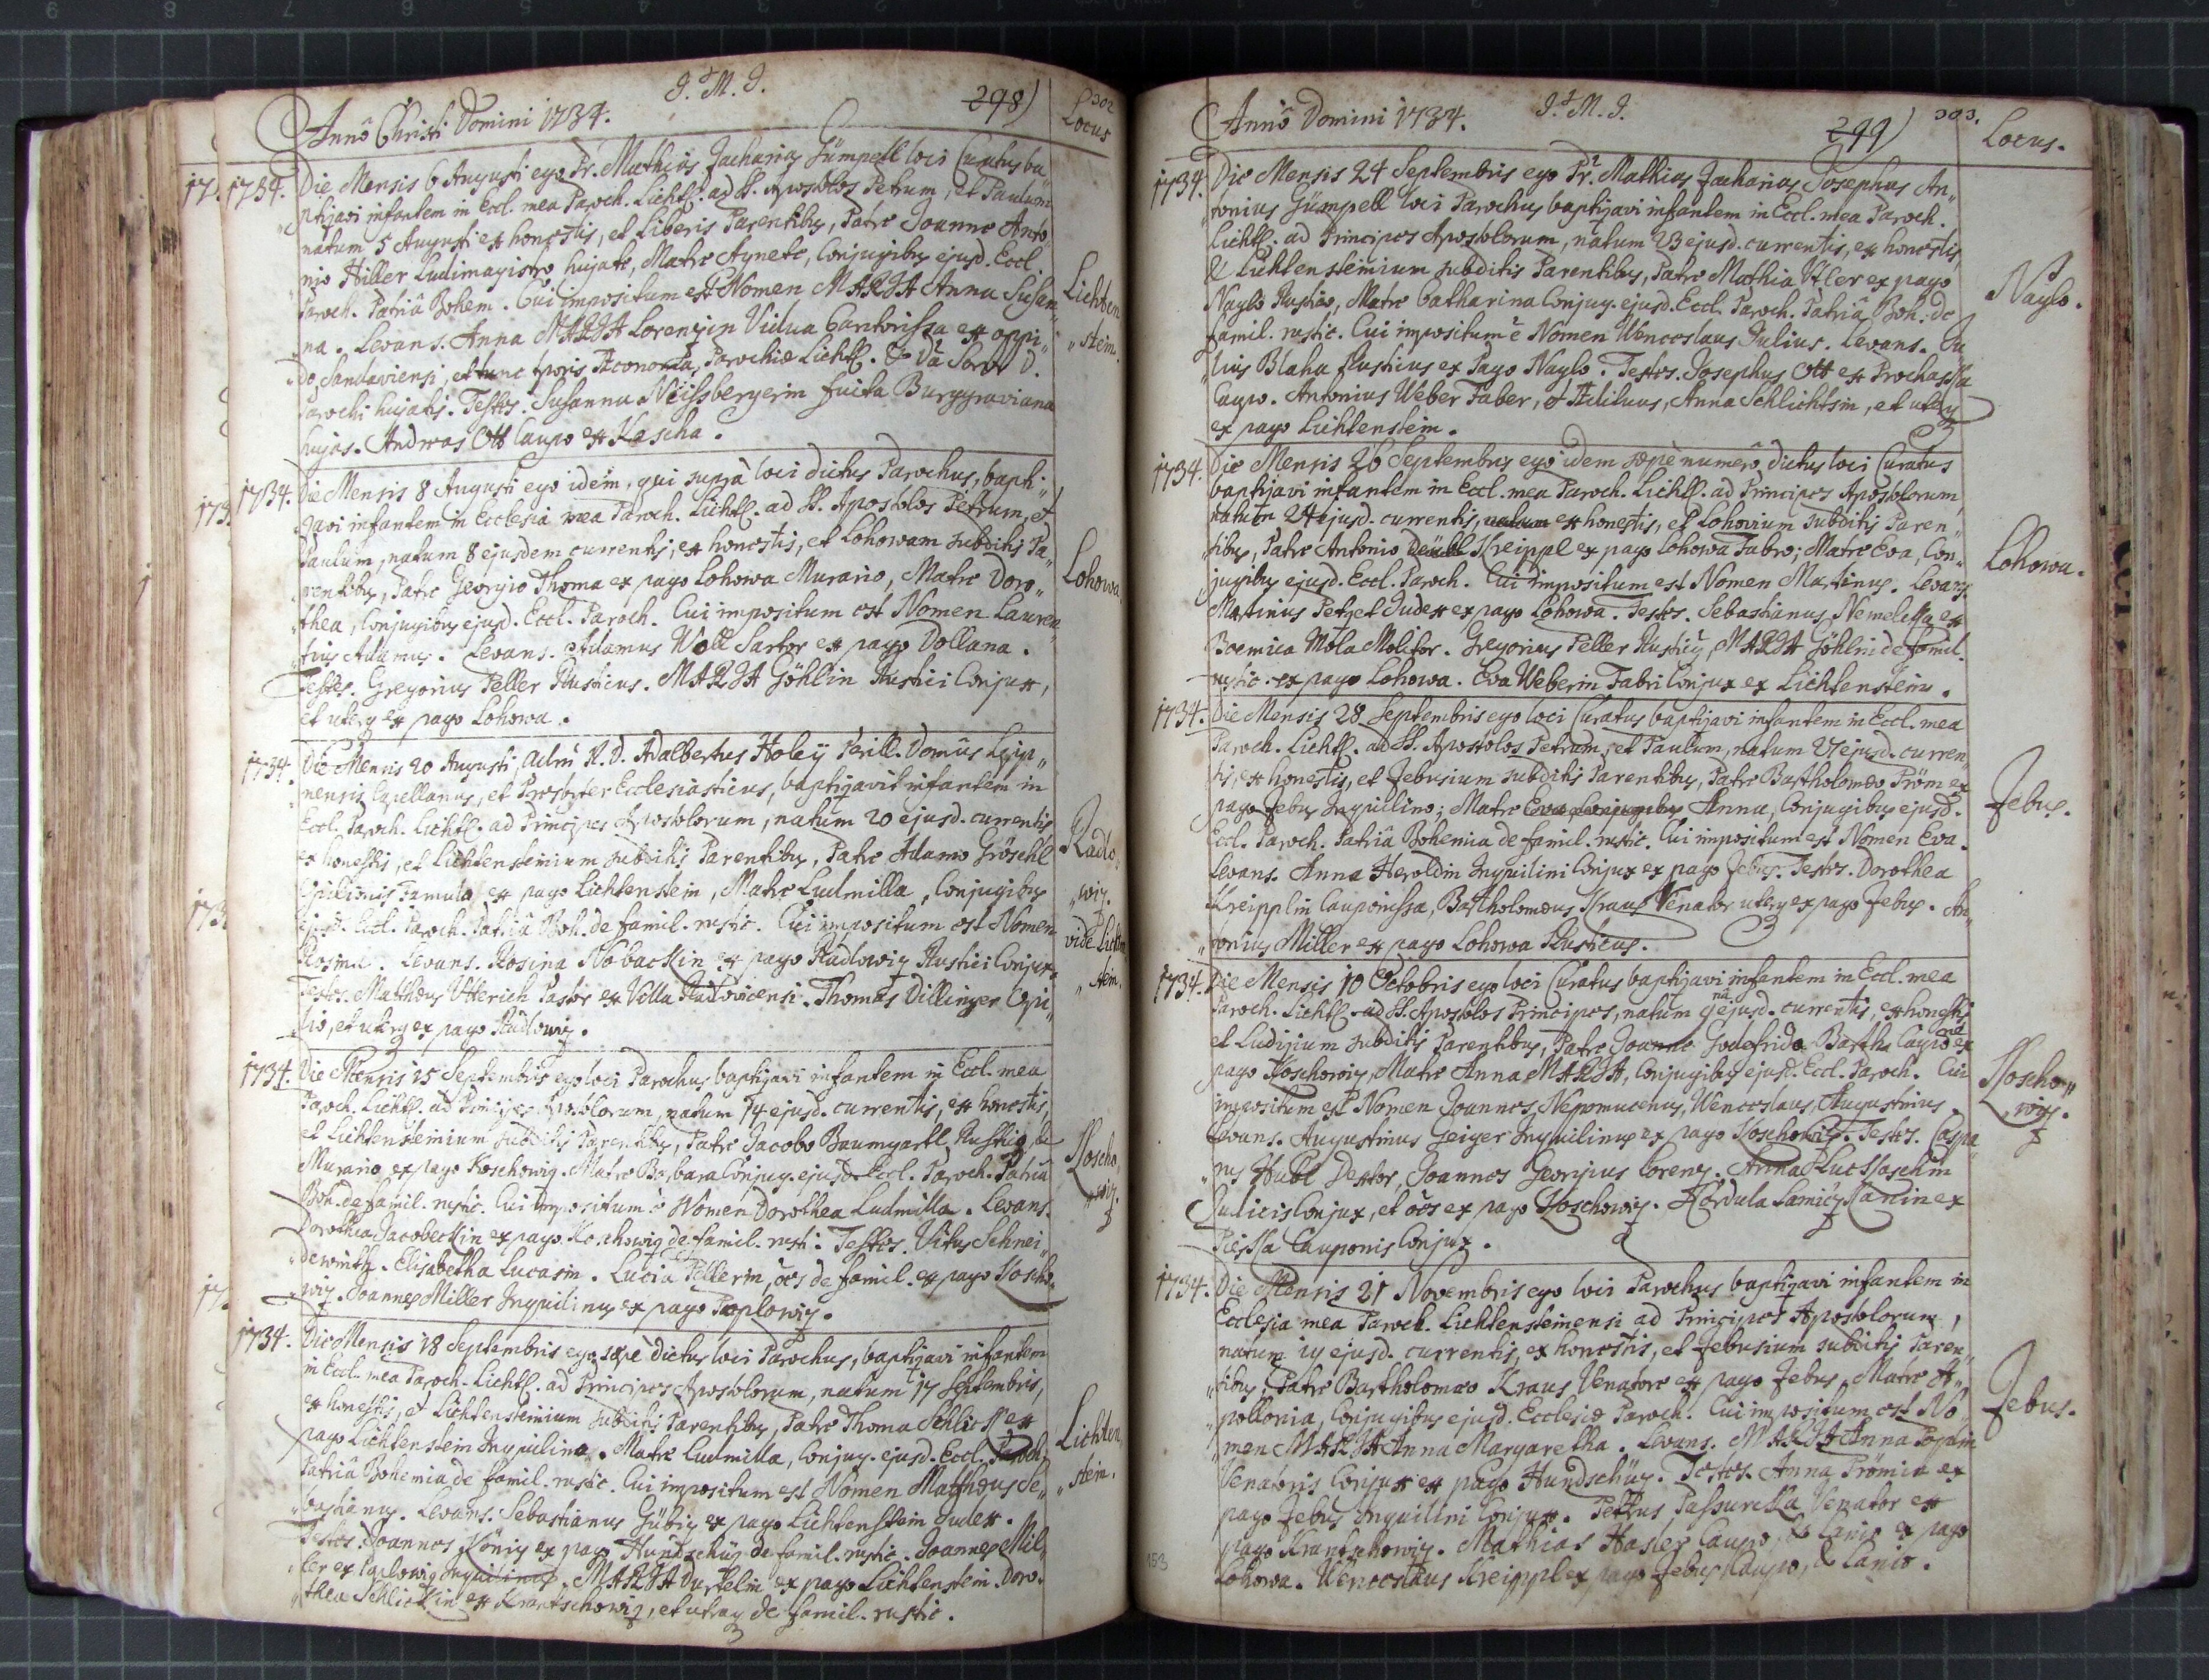 J. M. J.
Anno Christi Domini 1734.
298)
302
Locus
1734. Die Mensis 6 Augusti ego Pr. Mathias Zacharias Gümpell loci Curatus ba„
ptizavi infantem in Eccl. mea Paroch. Lichtf. ad SS. Apostolos Petrum, et Paulum
natum 5 Augusti ex honestis, et Liberis Parentibus, Patre Joanne Anto„
nio Hiller Ludimagistro hujate, Matre Agnete, Conjugibus ejusd. Eccl.
Paroch. Patriâ Bohem. Cui impositum est Nomen MARIA Anna Susan„
na. Levans. Anna MARIA Lorenzin Vidua Cantorissa ex oppi„
do Sandaviensi, et tunc tporis Parochiæ Lichtf. Soror D.
Parochi hujatis. Testes. Susanna Neissbergerin Burggraviana
hujas. Andreas Ott Caupo ex Kascha.
Lichten„
„stein.
1734. Die Mensis 8 Augusti ego idem, qui supra loci dictus Parochus, bapti„
zavi infantem in Ecclesia mea Paroch. Lichtf. ad SS. Apostolos Petrum, et
Paulum, natum 8 ejusdem currentis, ex honestis, et Lohowam subditis Pa„
rentibus, Patre Georgio Thoma ex pago Lohowa Murario, Matre Doro„
thea, Conjugibus ejusd. Eccl. Paroch. Cui impositum est Nomen Lauren„
tius Adamus. Levans. Adamus Woll Sartor ex pago Dollana.
Testes. Gregorius Peller Rusticus. MARIA Göhlin Rustici Conjux,
et uterq ex pago Lohowa.
Lohowa.
1734. Die Mensis 20 Augusti, Adm R. D. Adalbertus Holeÿ
nensis Capellanus, et Presbyter Ecclesiasticus, baptizavit infantem in
Eccl. Paroch. Lichtf. ad Principes Apostolorum, natum 20 ejusd. currentis
ex honestis, et Lichtensteinium subditis Parentibus, Patre Adamo Gröschl
Opilionis Famulo ex pago Lichtenstein, Matre Ludmilla, Conjugibus
ejusd. Eccl. Paroch. Patriâ Boh. de famil. rustic. Cui impositum est Nomen
Rosina. Levans. Rosina Nobackin ex pago Radlowiz Rustici Conjux
Testes. Matthæus Utterich Pastor ex Villa Thomas Dillinger Opi„
lio, et uterq ex pago Radlowiz.
Radlo„
„wiz.
vide Lichten
„stein.
1734. Die Mensis 15 Septembris ego loci Parochus baptizavi infantem in Eccl. mea
Paroch. Lichtf. ad Principes Apostolorum, natum 14 ejusd. currentis, ex honestis,
et Lichtensteinium subditis Parentibus, Patre Jacobo Baumgartl
Murario, ex pago Koschowiz. Matre Barbara Conjug. ejusd. Eccl. Paroch. Patriâ
Boh. de famil. rustic. Cui impositum ẽ Nomen Dorothea Ludmilla. Levans.
Dorothea Jacobeckin ex pago Koschowiz de famil. rusti. Testes. Vitus Schnei„
derwirth. Elisabetha Lucasin. Lucia Pellerin, ões de famil. ex pago Koscho„
wiz. Joannes Miller Inquilinus ex pago
Koscho„
„wiz.
1734. Die Mensis 18 Septembris ego sæpe dictus loci Parochus, baptizavi infantem
in Eccl. mea Paroch. Lichtf. ad Principes Apostolorum, natum 17 Septembris,
ex honestis, et Lichtensteinium subditis Parentibus, Patre Thoma Schlick ex
pago Lichtenstein Inquilino. Matre Ludmilla, Conjug. ejusd. Eccl. Paroch.
Patriâ Bohemia de famil. rustic. Cui impositum est Nomen Matthæus Se„
bastianus. Levans. Sebastianus Gübig ex pago Lichtenstein Judex.
Testes. Joannes König ex pago Hundschüz de famil. rustic. Joannes Mil„
ler ex Inquilinus. MARIA ex pago Lichtenstein. Doro„
thea Schlickin ex Krantschowiz, et utraq de famil. rustic.
Lichten„
„stein.
Anno Domini 1734.
J. M. J.
299)
303.
Locus.
1734. Die Mensis 24 Septembris ego Pr. Mathias Zacharias Josephus An„
tonius Gümpell loci Parochus baptizavi infantem in Eccl. mea Paroch.
Lichtf. ad Principes Apostolorum, natum 23 ejusd. currentis, ex honestis,
& Lichtensteinium subditis Parentibus, Patre Mathia Utler ex pago
Naylo Rustico, Matre Catharina Conjug. ejusd. Eccl. Paroch. Patriâ Boh. de
famil. rustic. Cui impositum ẽ Nomen Wenceslaus Julius. Levans. Ju„
lius Blaha Rusticus ex Pago Naylo. Testes. Josephus Ott ex
Caupo. Antonius Weber Faber, & Ædituus, Anna et uterq
ex pago Lichtenstein.
Naylo.
1734. Die Mensis 26 Septembris ego idem sæpe numero dictus loci Curatus
baptizavi infantem in Eccl. mea Paroch. Lichtf. ad Principes Apostolorum,
natum 24 ejusd. currentis, natum ex honestis, et Lohovium subditis Paren„
tibus, Patre Antonio Kreippl ex pago Lohowa Fabro; Matre Eva, Con„
jugibus ejusd. Eccl. Paroch. Cui impositum est Nomen Martinus. Levans.
Martinus Petzet Judex ex pago Lohowa. Testes. Sebastianus Nemeletka ex
Boemica Mola Molitor. Gregorius Peller Rusticus, MARIA Göhlin de famil.
rustic. ex pago Lohowa. Eva Weberin Fabri Conjux ex Lichtenstein.
Lohowa.
1734. Die Mensis 28 Septembris ego loci Curatus baptizavi infantem in Eccl. mea
Paroch. Lichtf. ad SS. Apostolos Petrum, et Paulum, natum 27 ejusd. curren„
tis, ex honestis, et Jebusium subditis Parentibus, Patre Bartholomæo Pröm ex
pago Jebus Inquilino; Matre Eva Conjugibus Anna, Conjugibus ejusd.
Eccl. Paroch. Patriâ Bohemia de famil. rustic. Cui impositum est Nomen Eva.
Levans. Anna Heroldin Inquilini Conjux ex pago Jebus. Testes. Dorothea
Kreipplin Cauponissa, Bartholomæus Kraus Venator uterq ex pago Jebus. An„
tonius Miller ex pago Lohowa Rusticus.
Jebus.
1734. Die Mensis 10 Octobris ego loci Curatus baptizavi infantem in Eccl. mea
Paroch. Lichtf. ad SS. Apostolos Principes, natum 9na ejusd. currentis, ex honestis
et Ludizium subditis Parentibus, Patre Joanne Godefrido Barth Caupone ex
pago Koschowiz, Matre Anna MARIA, Conjugibus ejusd. Eccl. Paroch. Cui
impositum est Nomen Joannes Nepomucenus, Wenceslaus, Augustinus.
Levans. Augustinus Geiger Inquilinus ex pago Koschowiz. Testes. Caspa„
rus Hubl Joannes Georgius Lorenz. Anna
Conjux, et ões ex pago Koschowiz. Kordula ex
Piessa Cauponis Conjux.
Koscho„
„wiz.
1734. Die Mensis 21 Novembris ego loci Parochus baptizavi infantem in
Ecclesia mea Paroch. Lichtensteinensi ad Principes Apostolorum,
natum 19 ejusd. currentis, ex honestis, et Jebusium subditis Paren„
tibus, Patre Bartholomæo Kraus Venatore ex pago Jebus, Matre A„
pollonia, Conjugibus ejusd. Ecclesiæ Paroch. Cui impositum est No„
men MARIA Anna Margaretha. Levans. MARIA Anna Poplin
Venatoris Conjux ex pago Hundschüz. Testes. Anna Prömin ex
pago Jebus Inquilini Conjux. Petrus Passuretka Venator ex
pago Krantschowiz. Mathias Hasler Caupo, & Lanio ex pago
Lohowa. Wenceslaus Kreippl ex pago Jebus Caupo, & Lanio.
Jebus.
153